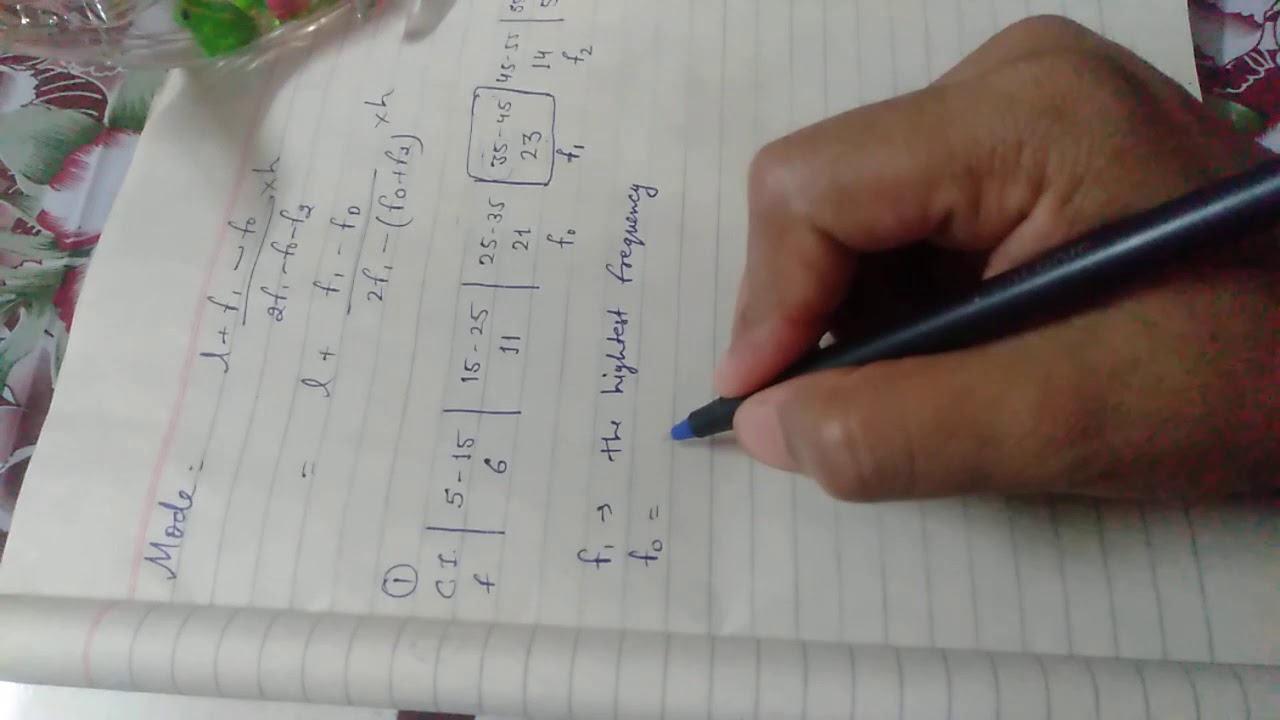 Mode :- l + f₁ - f₀ / 2f₁ - f₀ - f₂ × h
= l + f₁ - f₀ / 2f₁ - (f₀ + f₂) × h
①
C.I. | 5 - 15 | 15 - 25 | 25 - 35 | 35 - 45 | 45 - 55 |
f | 6 | 11 | 21 | 23 | 14 |
f₀ f₁ f₂
f₁ → the hightest frequency
f₀ =